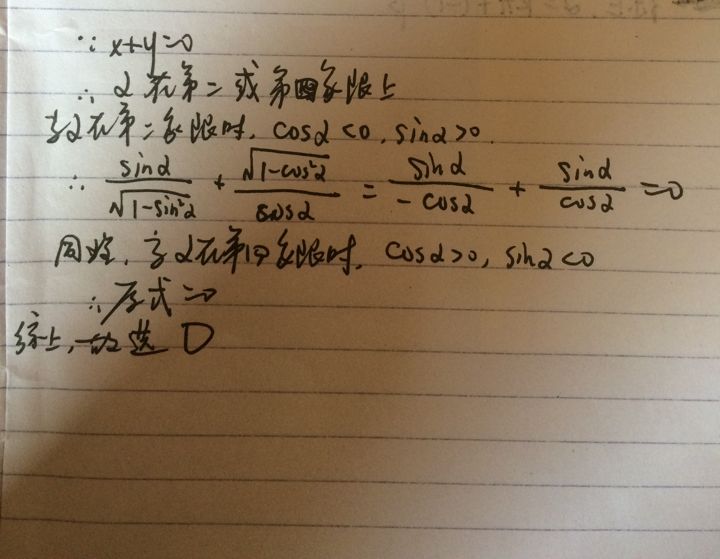 ∵ x+y=0
∴ α在第二或第四象限上
当α在第二象限时, cosα<0, sinα>0.
∴ sinα/√(1-sin²α) + √(1-cos²α)/cosα = sinα/(-cosα) + sinα/cosα =0
同理, 当α在第四象限时, cosα>0, sinα<0
∴原式=0
综上, 故选 D